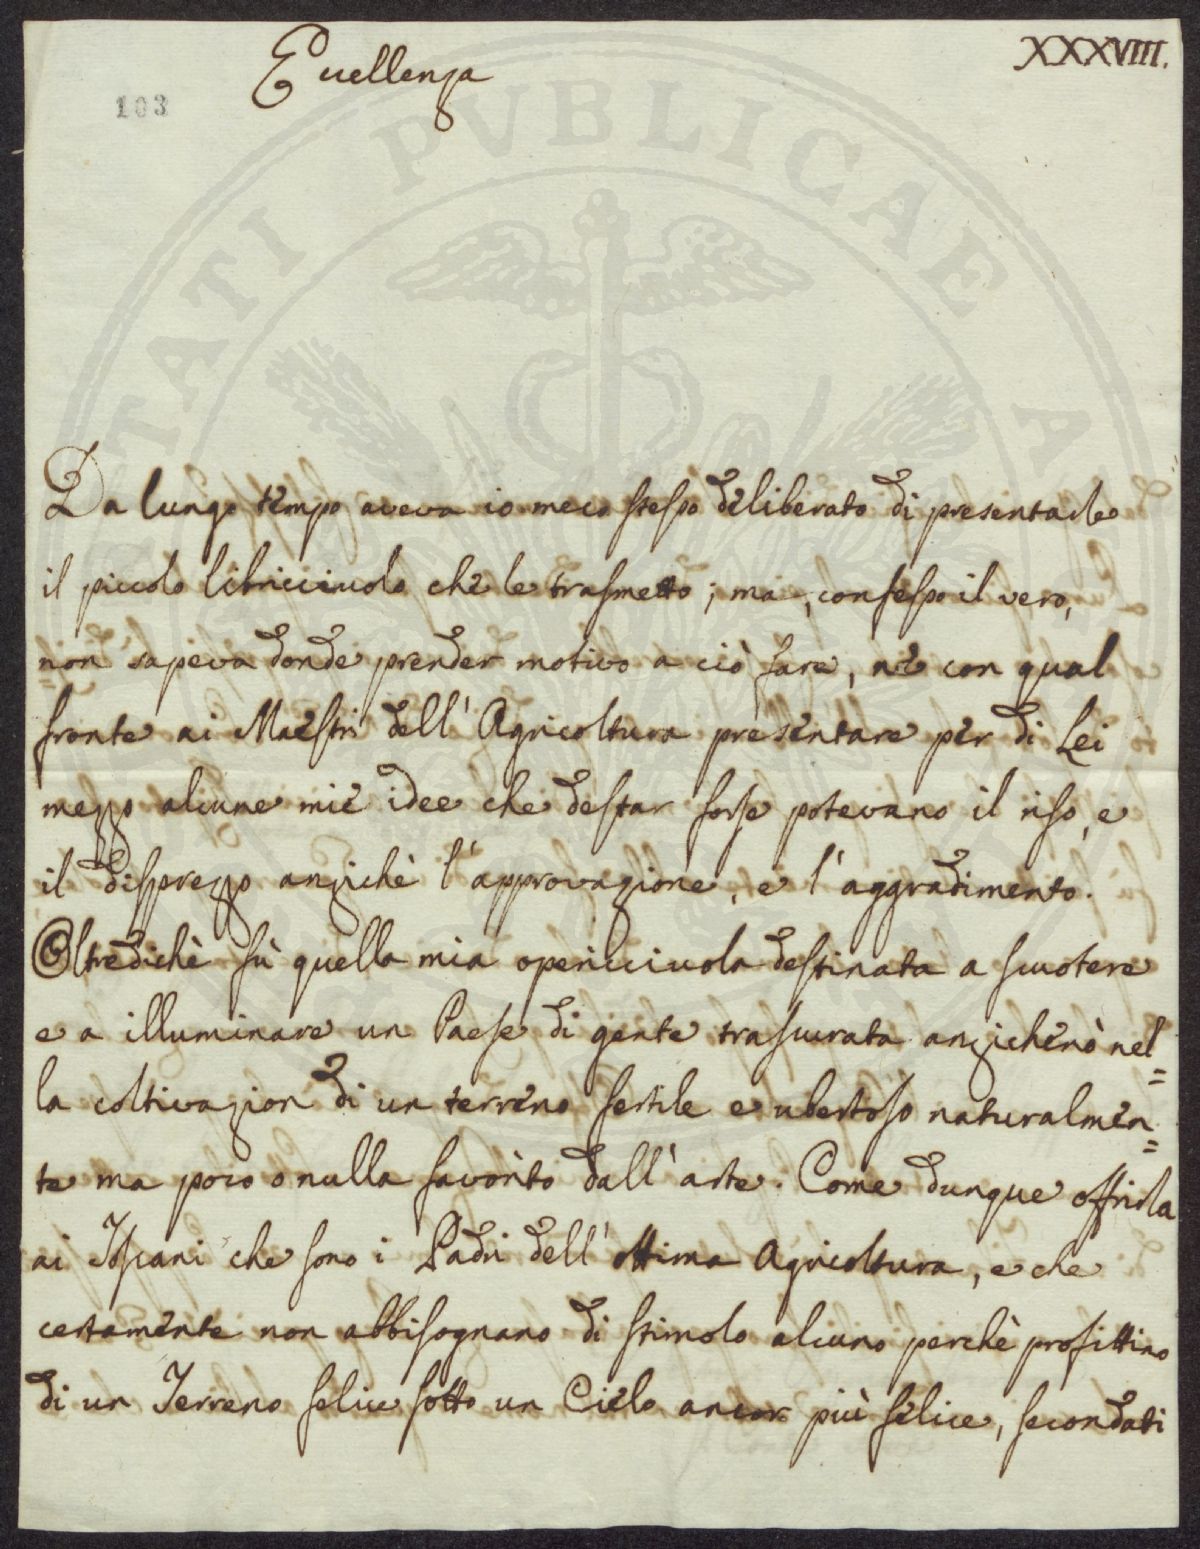 XXXVIII.
Eccellenza
103
PUBLICAE
Da lungo tempo aveva io meco stesso deliberato di presentarle
il piccolo libricciuolo che le trasmetto; ma, confesso il vero,
non sapeva donde prender motivo a ciò fare, nè con qual
fronte ai Maestri dell' Agricoltura presentare per di Lei
mezzo alcune mie idee che destar forse potevano il riso, e
il disprezzo anzichè l'approvazione, e l'aggradimento.
Oltredichè fù quella mia opericciuola destinata a scuotere
e a illuminare un Paese di gente trascurata anzichenò nel=
la coltivazion di un terreno fertile e ubertoso naturalmen=
te ma poco o nulla favorito dall' arte. Come dunque offrirla
ai Toscani che sono i Padri dell' ottima Agricoltura, e che
certamente non abbisognano di stimolo alcuno perchè profittino
di un Terreno felice sotto un Cielo ancor più felice, secondati